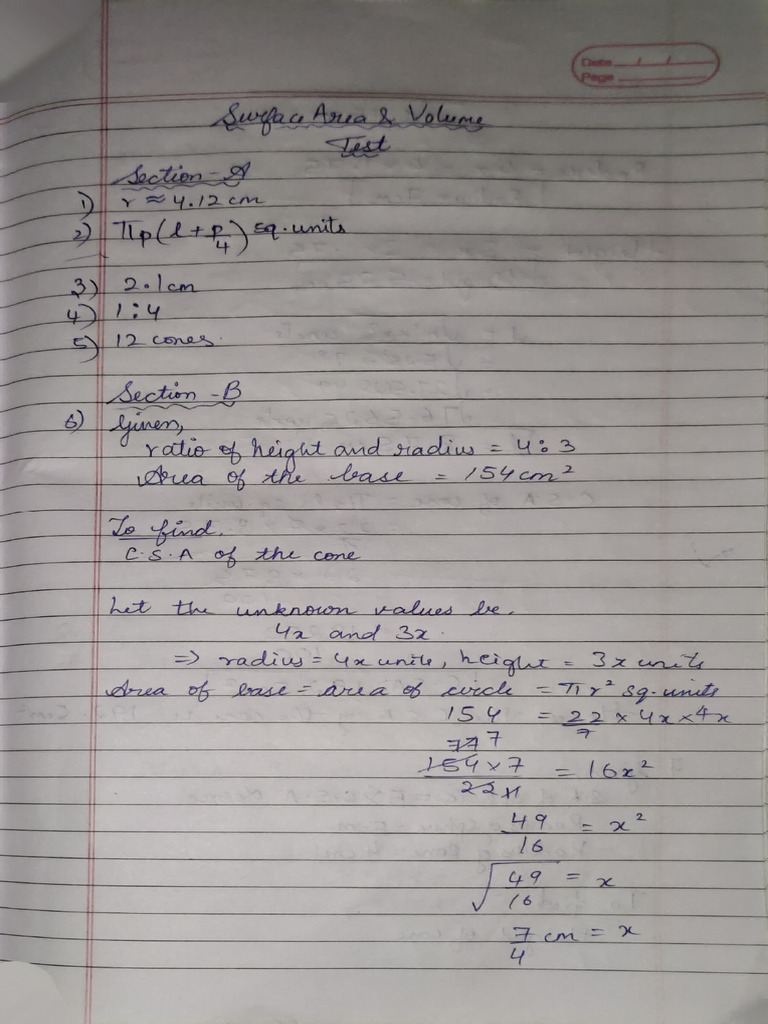 Date / /
Page
Surface Area & Volume
Test
Section - A
1) r ≈ 4.12 cm
2) πp(l + p/4) sq. units
3) 2.1 cm
4) 1 : 4
5) 12 cones.
Section - B
6) Given,
ratio of height and radius = 4 : 3
Area of the base = 154 cm²
To find.
C.S.A of the cone
Let the unknown values be.
4x and 3x.
⇒ radius = 4x units, height = 3x units
Area of base = area of circle = πr² sq. units
154 = 22/7 × 4x × 4x
77 7
154 × 7 / 22 11 = 16x²
49/16 = x²
√49/16 = x
7/4 cm = x